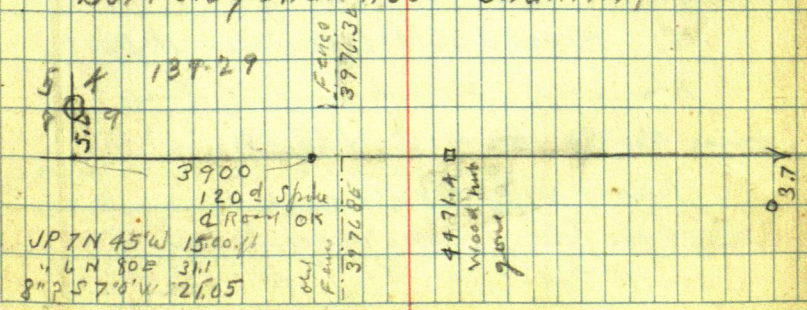 5 4 139-29
8 9
5.6
Fence
3976.36
3900
120d Spike
¢ Road OK
JP 7 N 45°W 15.00
" 6 N 80 E 31.1
8" S 7°0'W 21.05
Old Fence
3976.86
4471.4
Wood hub
gone
3.7